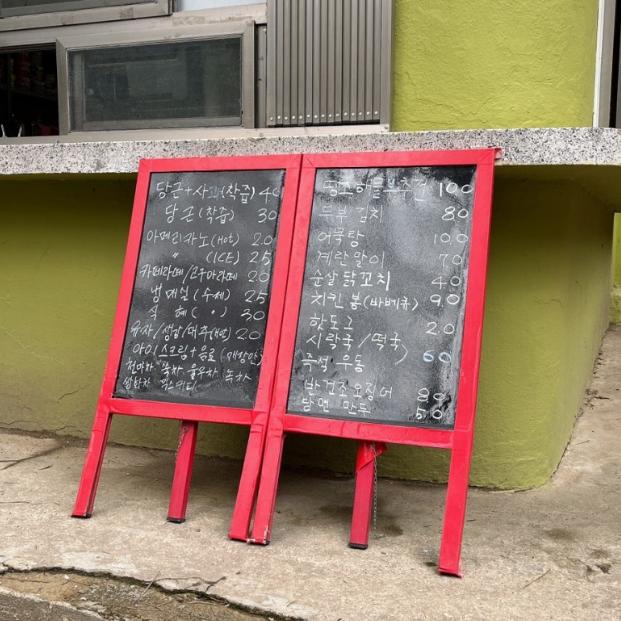 당근+사과(착즙) 40
당근(착즙) 30
아메리카노(Hot) 2.0
" (ICE) 2.5
카페라떼/고구마라떼 2.0
냉매실(수제) 2.5
식혜( " ) 30
유자/생강/대추(Hot) 2.0
아이스크림+음료
천마차 쑥차 율무차 녹차
쌍화차
100
두부김치 80
어묵탕 10.0
계란말이 70
순살닭꼬치 40
치킨봉(바베큐) 90
핫도그 2.0
시락국/떡국 60
즉석우동
반건조오징어 80
당면 만두 50